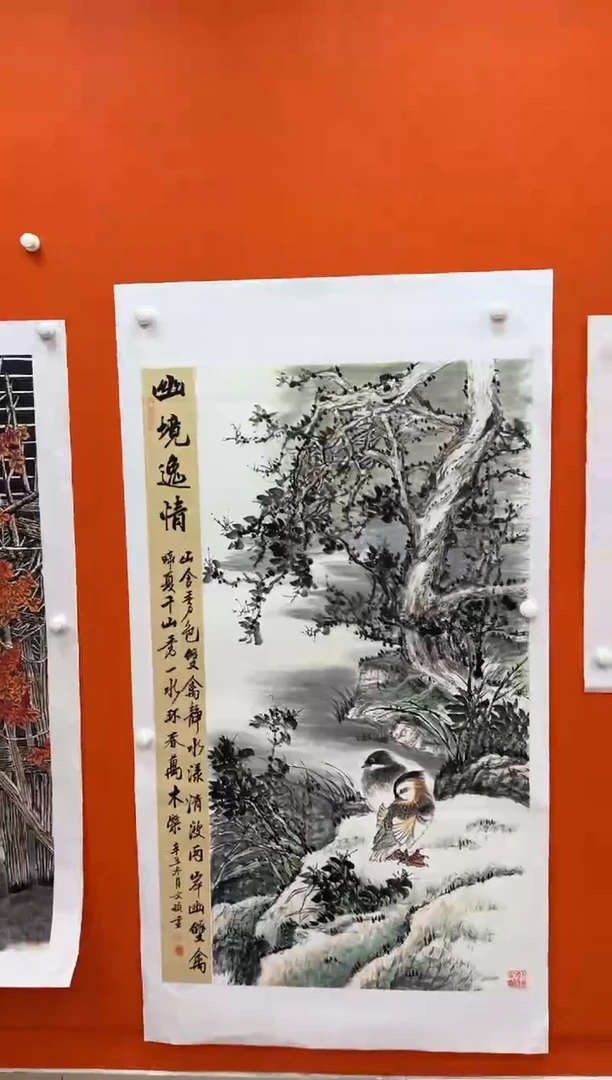 幽境逸情
山含秀色雙禽靜水漾清波兩岸幽雙禽
歸夏千山秀一水环春萬木榮
辛丑六月